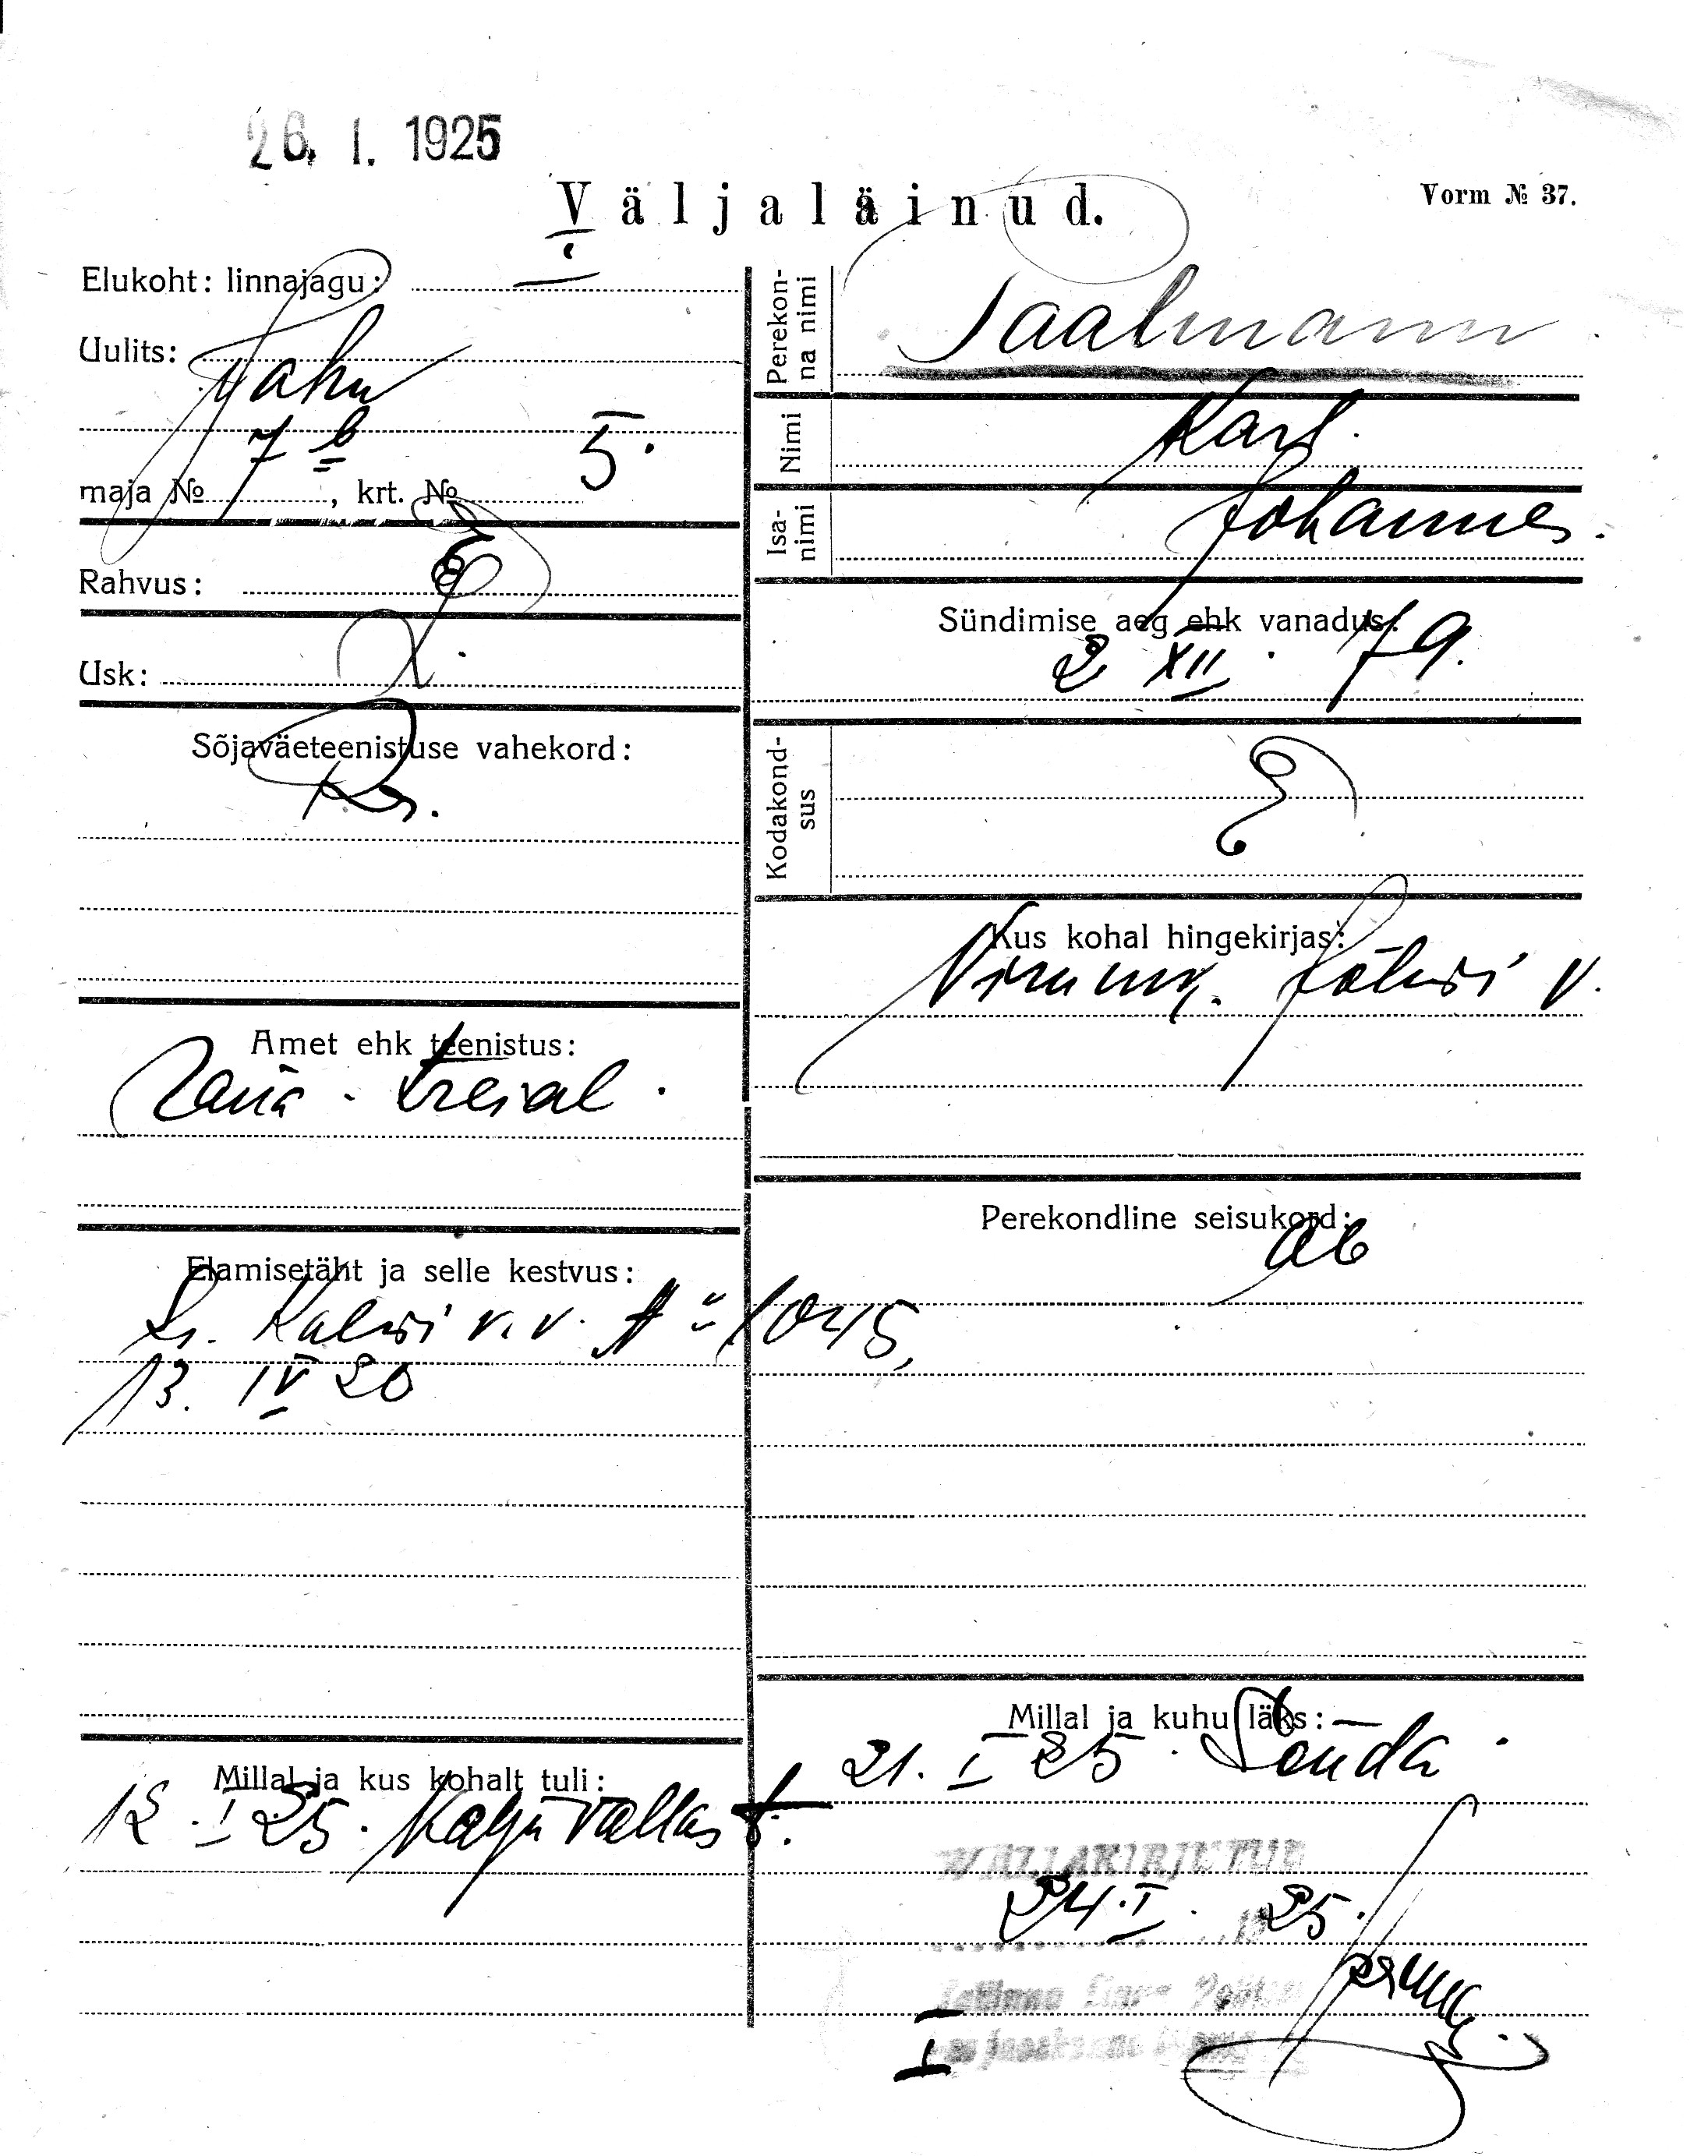 26. I. 1925
Väljaläinud.
Vorm № 37.
Elukoht: linnajagu: I
Uulits: Jahu
7 b 5.
maja № , krt. №
Rahvus: E
Usk: L.
Sõjaväeteenistuse vahekord:
Amet ehk teenistus:
treial.
Elamisetäht ja selle kestvus:
v. v. A" 1045,
13. IV 20
Millal ja kus kohalt tuli:
12. I 25. vallast.
Perekonna nimi
Taalmann
Nimi Karl.
Isanimi Johannes.
Sündimise aeg ehk vanadus:
2 XII. 79.
Kodakondsus E
Kus kohal hingekirjas:
Virumk. Jõhvi v.
Perekondline seisukord:
ab
Millal ja kuhu läks:
21. I 25. Sonda.
VÄLJAKIRJUTUD
24. I. 1925.
Tallinna Linna
I jaoskonna